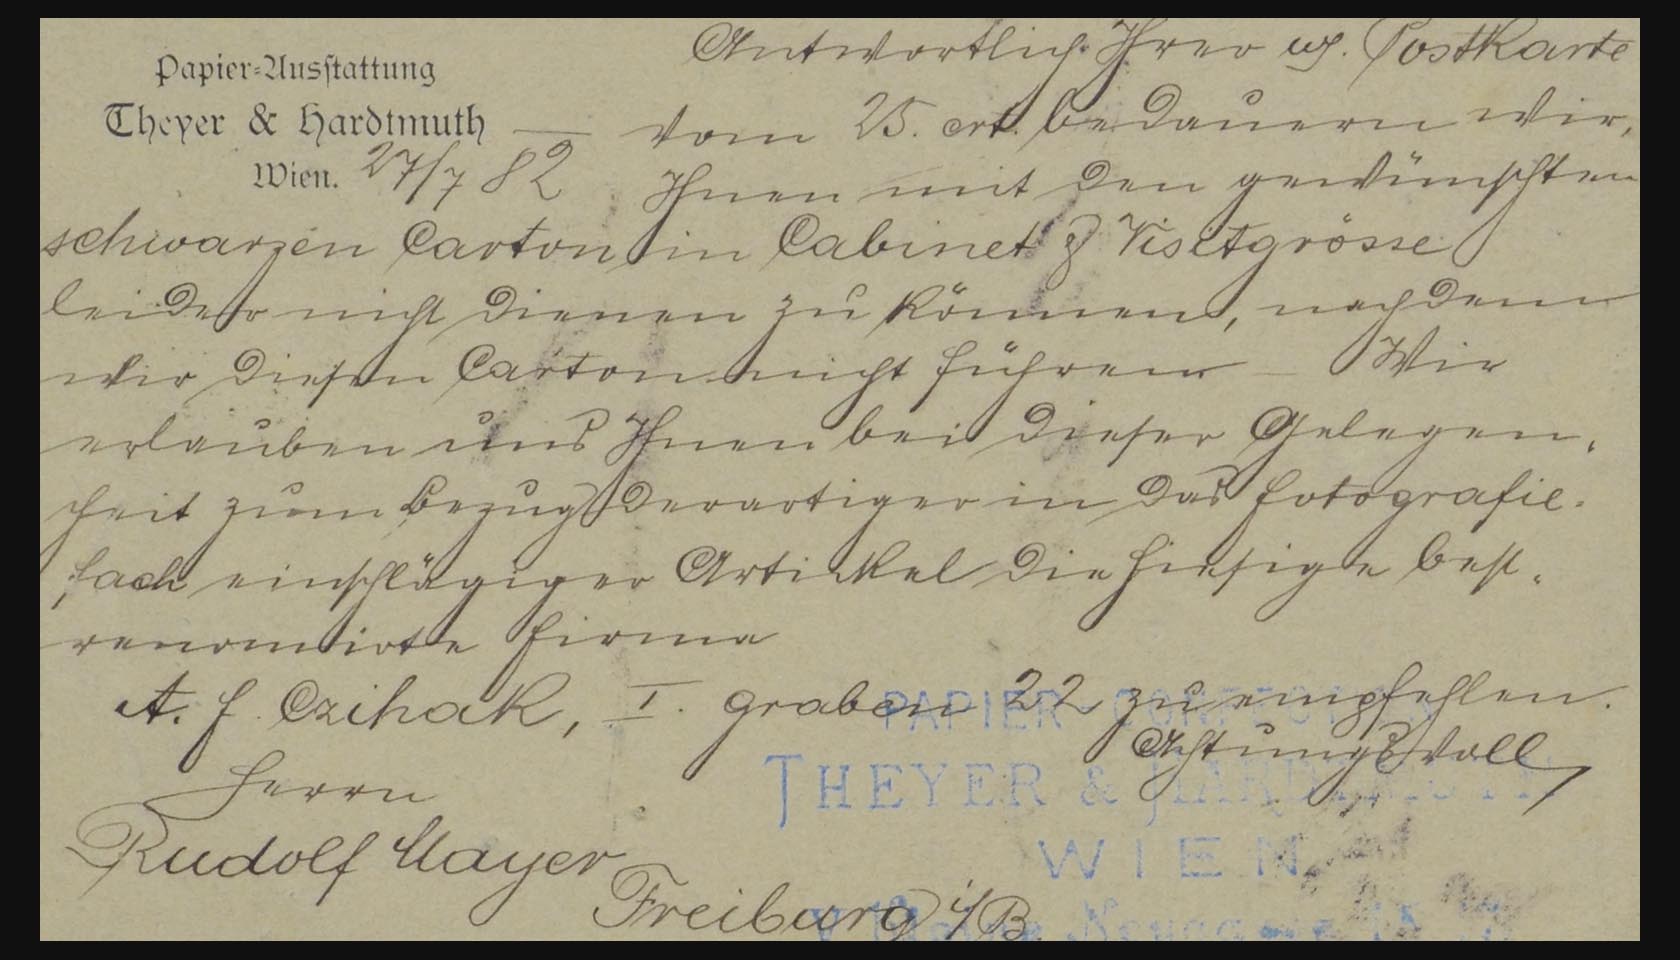 Papier-Ausstattung
Theyer & Hardtmuth
Wien. 27/7 82
Antwortlich Ihrer w. Postkarte
vom 25. crt. bedauern wir,
Ihnen mit den gewünschten
schwarzen Carton in Cabinet & Visitgrösse
leider nicht dienen zu können, nachdem
wir diesen Carton nicht führen – Wir
erlauben uns Ihnen bei dieser Gelegen-
heit zum Bezug derartiger in das Fotografie-
fach einschlägiger Artikel die hiesige best-
renomirte Firma
A. F. Czihak, I. Graben 22 zu empfehlen.
Achtungsvoll
Herrn
Rudolf Mayer
Freiburg i/B.
PAPIER-CONFECTION
THEYER & HARDTMUTH
WIEN